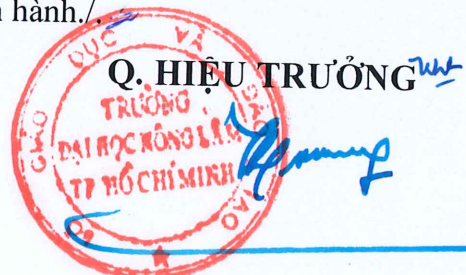 hành./.
Q. HIỆU TRƯỞNG
BỘ GIÁO DỤC VÀ ĐÀO TẠO
TRƯỜNG
ĐẠI HỌC NÔNG LÂM
TP HỒ CHÍ MINH